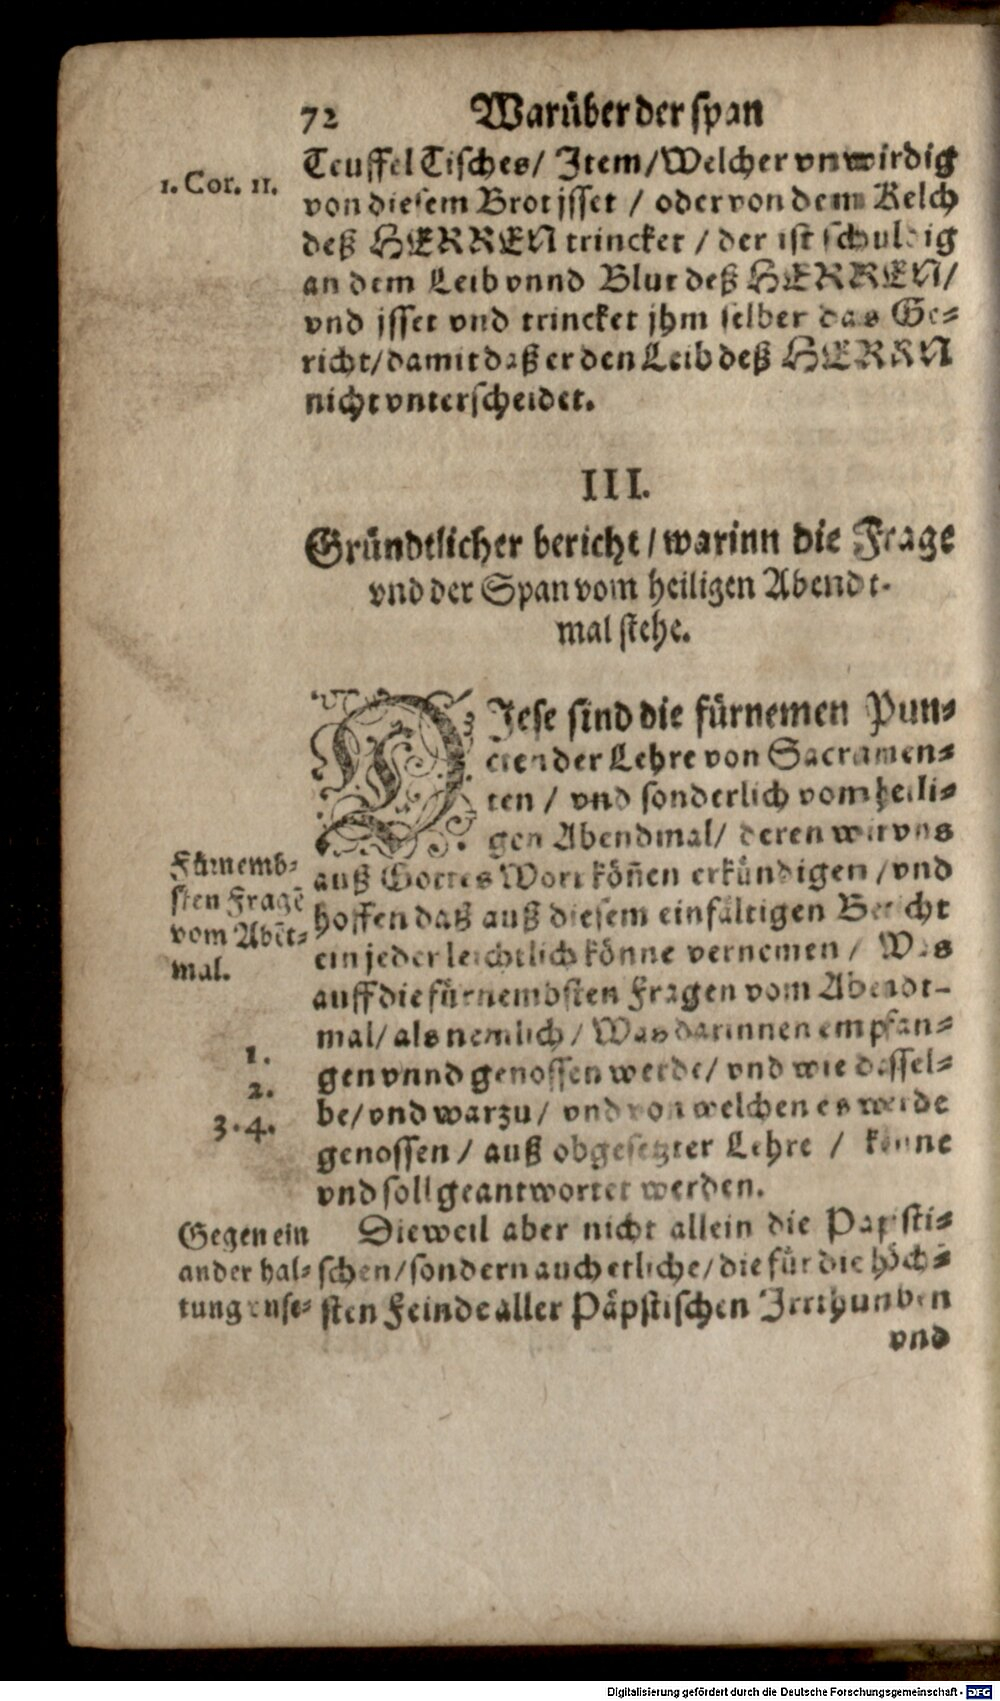 72 Warüber der span
Teuffel Tisches / Item / Welcher vnwirdig
1. Cor. 11.
von diesem Brot jsset / oder von dem Kelch
deß HERREN trincket / der ist schuldig
an dem Leib vnnd Blut deß HERREN /
vnd jsset vnd trincket jhm selber das Ge-
richt / damit daß er den Leib deß HERRN
nicht vnterscheidet.
III.
Gründtlicher bericht / warinn die Frage
vnd der Span vom heiligen Abendt-
mal stehe.
DIese sind die fürnemen Pun-
cten der Lehre von Sacramen-
ten / vnd sonderlich vom heili-
gen Abendmal / deren wir vns
auß Gottes Wort köñen erkündigen / vnd
hoffen daß auß diesem einfältigen Bericht
ein jeder leichtlich könne vernemen / Was
auff die fürnembsten Fragen vom Abendt-
mal / als nemlich / Was darinnen empfan-
gen vnnd genossen werde / vnd wie dassel-
be / vnd warzu / vnd von welchen es werde
genossen / auß obgesetzter Lehre / könne
vnd soll geantwortet werden.
Fürnemb-
sten Fragē
vom Abēt-
mal.
1.
2.
3. 4.
Dieweil aber nicht allein die Papisti-
schen / sondern auch etliche / die für die höch-
sten Feinde aller Päpstischen Irrthumben
Gegen ein
ander hal-
tung
vnd
Digitalisierung gefördert durch die Deutsche Forschungsgemeinschaft - DFG